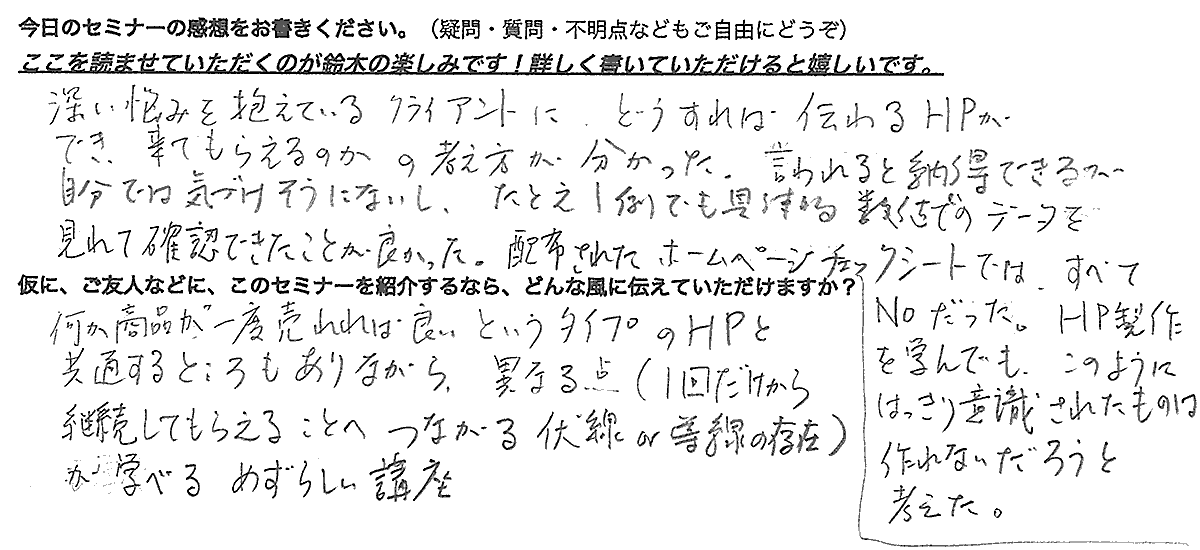 今日のセミナーの感想をお書きください。（疑問・質問・不明点などもご自由にどうぞ）
ここを読ませていただくのが鈴木の楽しみです！詳しく書いていただけると嬉しいです。
深い悩みを抱えているクライアントに、どうすれば伝わるHPが
でき、来てもらえるのかの考え方が分かった。言われると納得できるが…
自分では気づけそうにないし、たとえ1例でも具体的数値でのデータを
見れて確認できたことが良かった。配布されたホームページチェッ
クシートでは、すべて
Noだった。HP製作
を学んでも、このように
はっきり意識されたものは
作れないだろうと
考えた。
仮に、ご友人などに、このセミナーを紹介するなら、どんな風に伝えていただけますか？
何か商品が一度売れれば良いというタイプのHPと
共通するところもありながら、異なる点（1回だけから
継続してもらえることへつながる伏線or導線の存在）
が学べるめずらしい講座